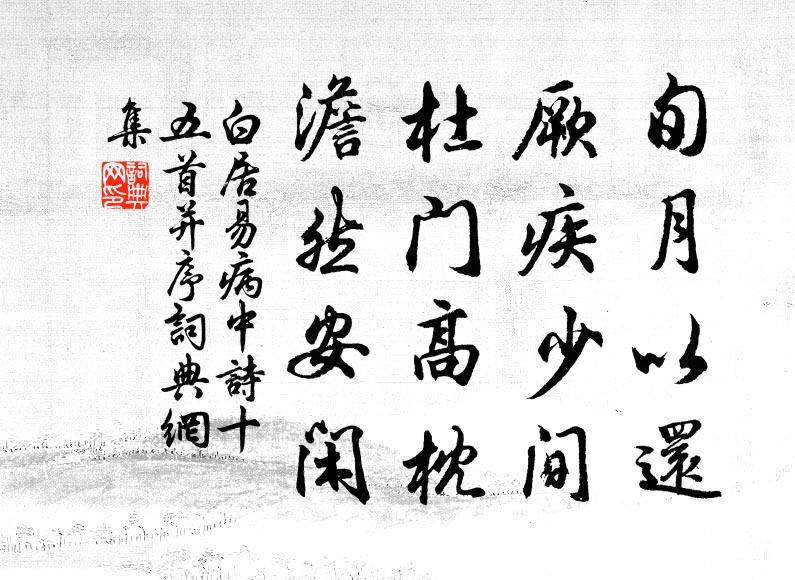 旬月以還
厥疾少间
杜门高枕
澹然安闲
白居易病中詩十
五首并序詞典網
集
詞典网印